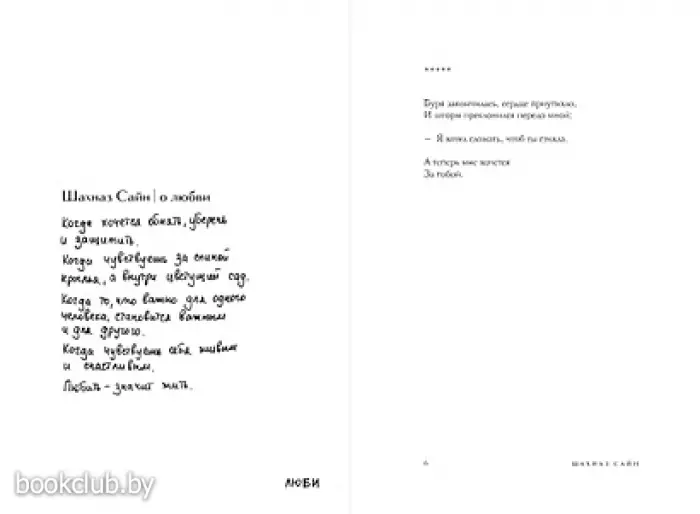 Шахназ Сайн | о любви
Когда хочется обнять, уберечь
и защитить.
Когда чувствуешь за спиной
крылья, а внутри цветущий сад.
Когда то, что важно для одного
человека, становится важным
и для другого.
Когда чувствуешь себя живым
и счастливым.
Любить – значит жить.
ЛЮБИ
*****
Буря закончилась, сердце
И шторм преклонился передо мной;
– Я хотел сломать, чтоб ты
А теперь мне хочется
За тобой.
6
ШАХНАЗ САЙН
bookclub.by